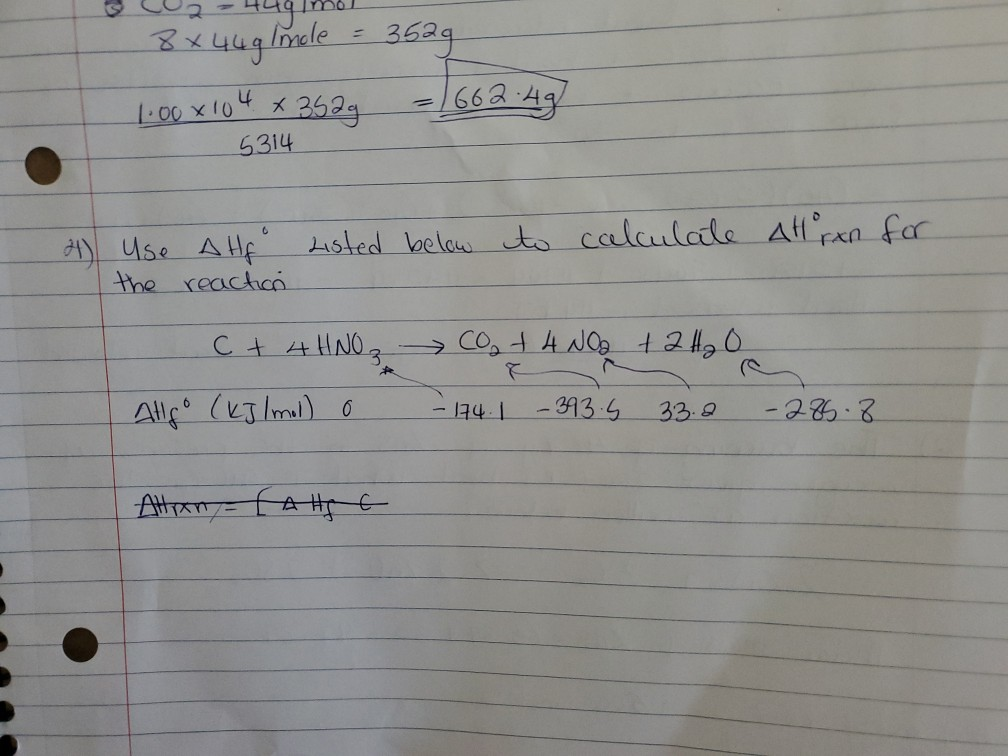 CO2 = 44g/mol
8 × 44g/mole = 352g
1.00 × 10⁴ × 352g = 662.4g
5314
Use ΔHf° Listed below to calculate ΔH°rxn for
the reaction
C + 4HNO3 → CO2 + 4NO2 + 2H2O
ΔHf° (KJ/mol) 0 -174.1 -393.5 33.2 -285.8
ΔHrxn = [ΔHf C